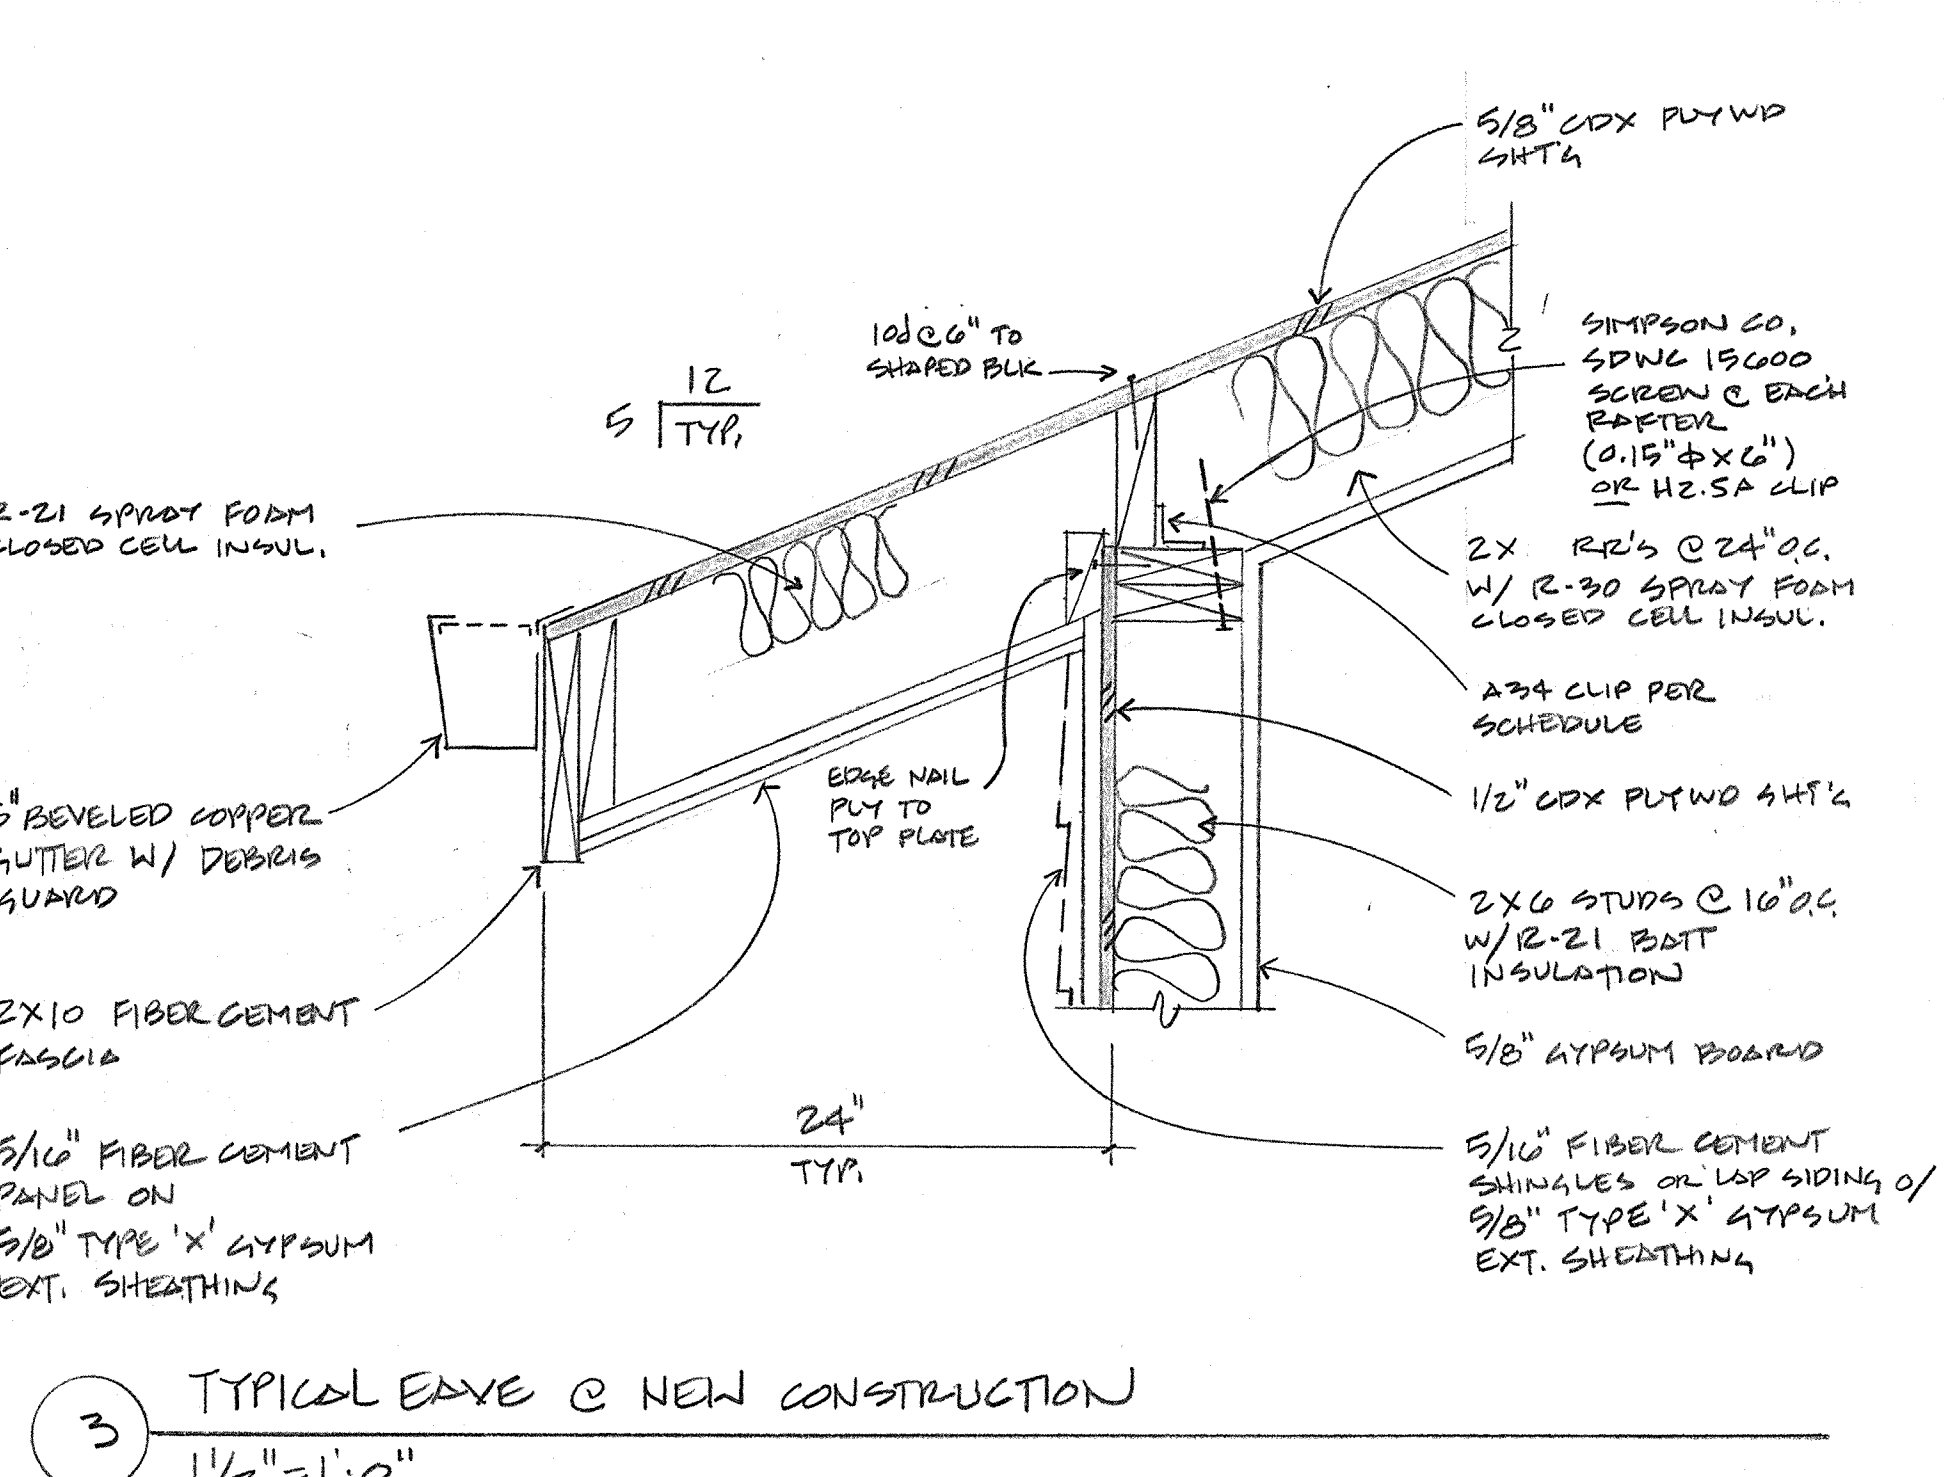 5/8" CDX PLYWD
SHT'G
10d @ 6" TO
SHAPED BLK
12
5
TYP.
SIMPSON CO.
SDWC 15600
SCREW @ EACH
RAFTER
(0.15"ϕ X 6")
OR H2.5A CLIP
R-21 SPRAY FOAM
CLOSED CELL INSUL.
2X RR'S @ 24" O.C.
W/ R-30 SPRAY FOAM
CLOSED CELL INSUL.
A34 CLIP PER
SCHEDULE
EDGE NAIL
PLY TO
TOP PLATE
1/2" CDX PLYWD SHT'G
5" BEVELED COPPER
GUTTER W/ DEBRIS
GUARD
2X6 STUDS @ 16" O.C.
W/ R-21 BATT
INSULATION
2X10 FIBER CEMENT
FASCIA
5/8" GYPSUM BOARD
24"
TYP.
5/16" FIBER CEMENT
PANEL ON
5/8" TYPE 'X' GYPSUM
EXT. SHEATHING
5/16" FIBER CEMENT
SHINGLES OR LAP SIDING O/
5/8" TYPE 'X' GYPSUM
EXT. SHEATHING
3
TYPICAL EAVE @ NEW CONSTRUCTION
1 1/2" = 1'-0"